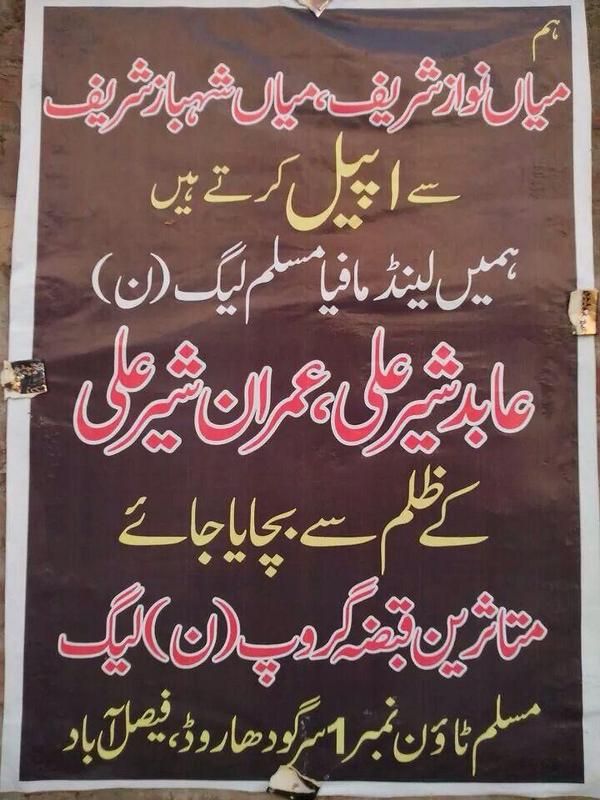 ہم
میاں نواز شریف، میاں شہباز شریف
سے اپیل کرتے ہیں
ہمیں لینڈ مافیا مسلم لیگ (ن)
عابد شیر علی، عمران شیر علی
کے ظلم سے بچایا جائے
متاثرین قبضہ گروپ (ن) لیگ
مسلم ٹاؤن نمبر 1 سرگودھا روڈ، فیصل آباد